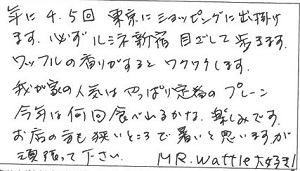 年に4.5回 東京にショッピングに出掛け
ます。必ずルミネ新宿目ざして歩きます。
ワッフルの香りがするとワクワクします。
我が家の人気はやっぱり定番のプレーン
今年は何回食べれるかな。楽しみです。
お店の方も狭いところで暑いと思いますが
頑張って下さい。 MR.waffle大好き!